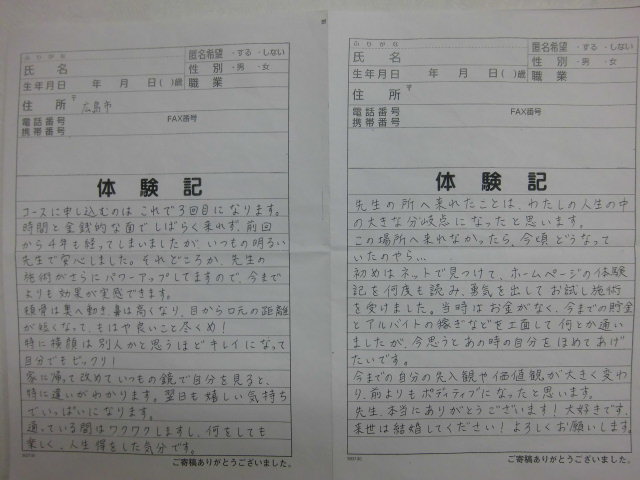 ふりがな
氏名
匿名希望 ・する ・しない
性別 ・男 ・女
生年月日 年 月 日( )歳 職業
住所 〒 広島市
電話番号 FAX番号
携帯番号
体験記
コースに申し込むのは これで3回目になります。
時間と金銭的な面でしばらく来れず、前回
から4年も経ってしまいましたが、いつもの明るい
先生で安心しました。それどころか、先生の
施術がさらにパワーアップしてますので、今まで
よりも効果が実感できます。
頬骨は奥へ動き、鼻は高くなり、目から口元の距離
が短くなって、もはや良いこと尽くめ!
特に横顔は別人かと思うほどキレイになって
自分でもビックリ!
家に帰って改めていつもの鏡で自分を見ると、
特に違いがわかります。翌日も嬉しい気持ち
でいっぱいになります。
通っている間はワクワクしますし、何をしても
楽しく、人生得をした気分です。
ご寄稿ありがとうございました。
ふりがな
氏名
匿名希望 ・する ・しない
性別 ・男 ・女
生年月日 年 月 日( )歳 職業
住所 〒
電話番号 FAX番号
携帯番号
体験記
先生の所へ来れたことは、わたしの人生の中
の大きな分岐点になったと思います。
この場所へ来れなかったら、今頃どうなって
いたのやら…
初めはネットで見つけて、ホームページの体験
記を何度も読み、勇気を出してお試し施術
を受けました。当時はお金がなく、今までの貯金
とアルバイトの稼ぎなどを工面して何とか通い
ましたが、今思うとあの時の自分をほめてあげ
たいです。
今までの自分の先入観や価値観が大きく変わ
り、前よりもポディティブになったと思います。
先生、本当にありがとうございます!大好きです、
来世は結婚してください!よろしくお願いします。
ご寄稿ありがとうございました。